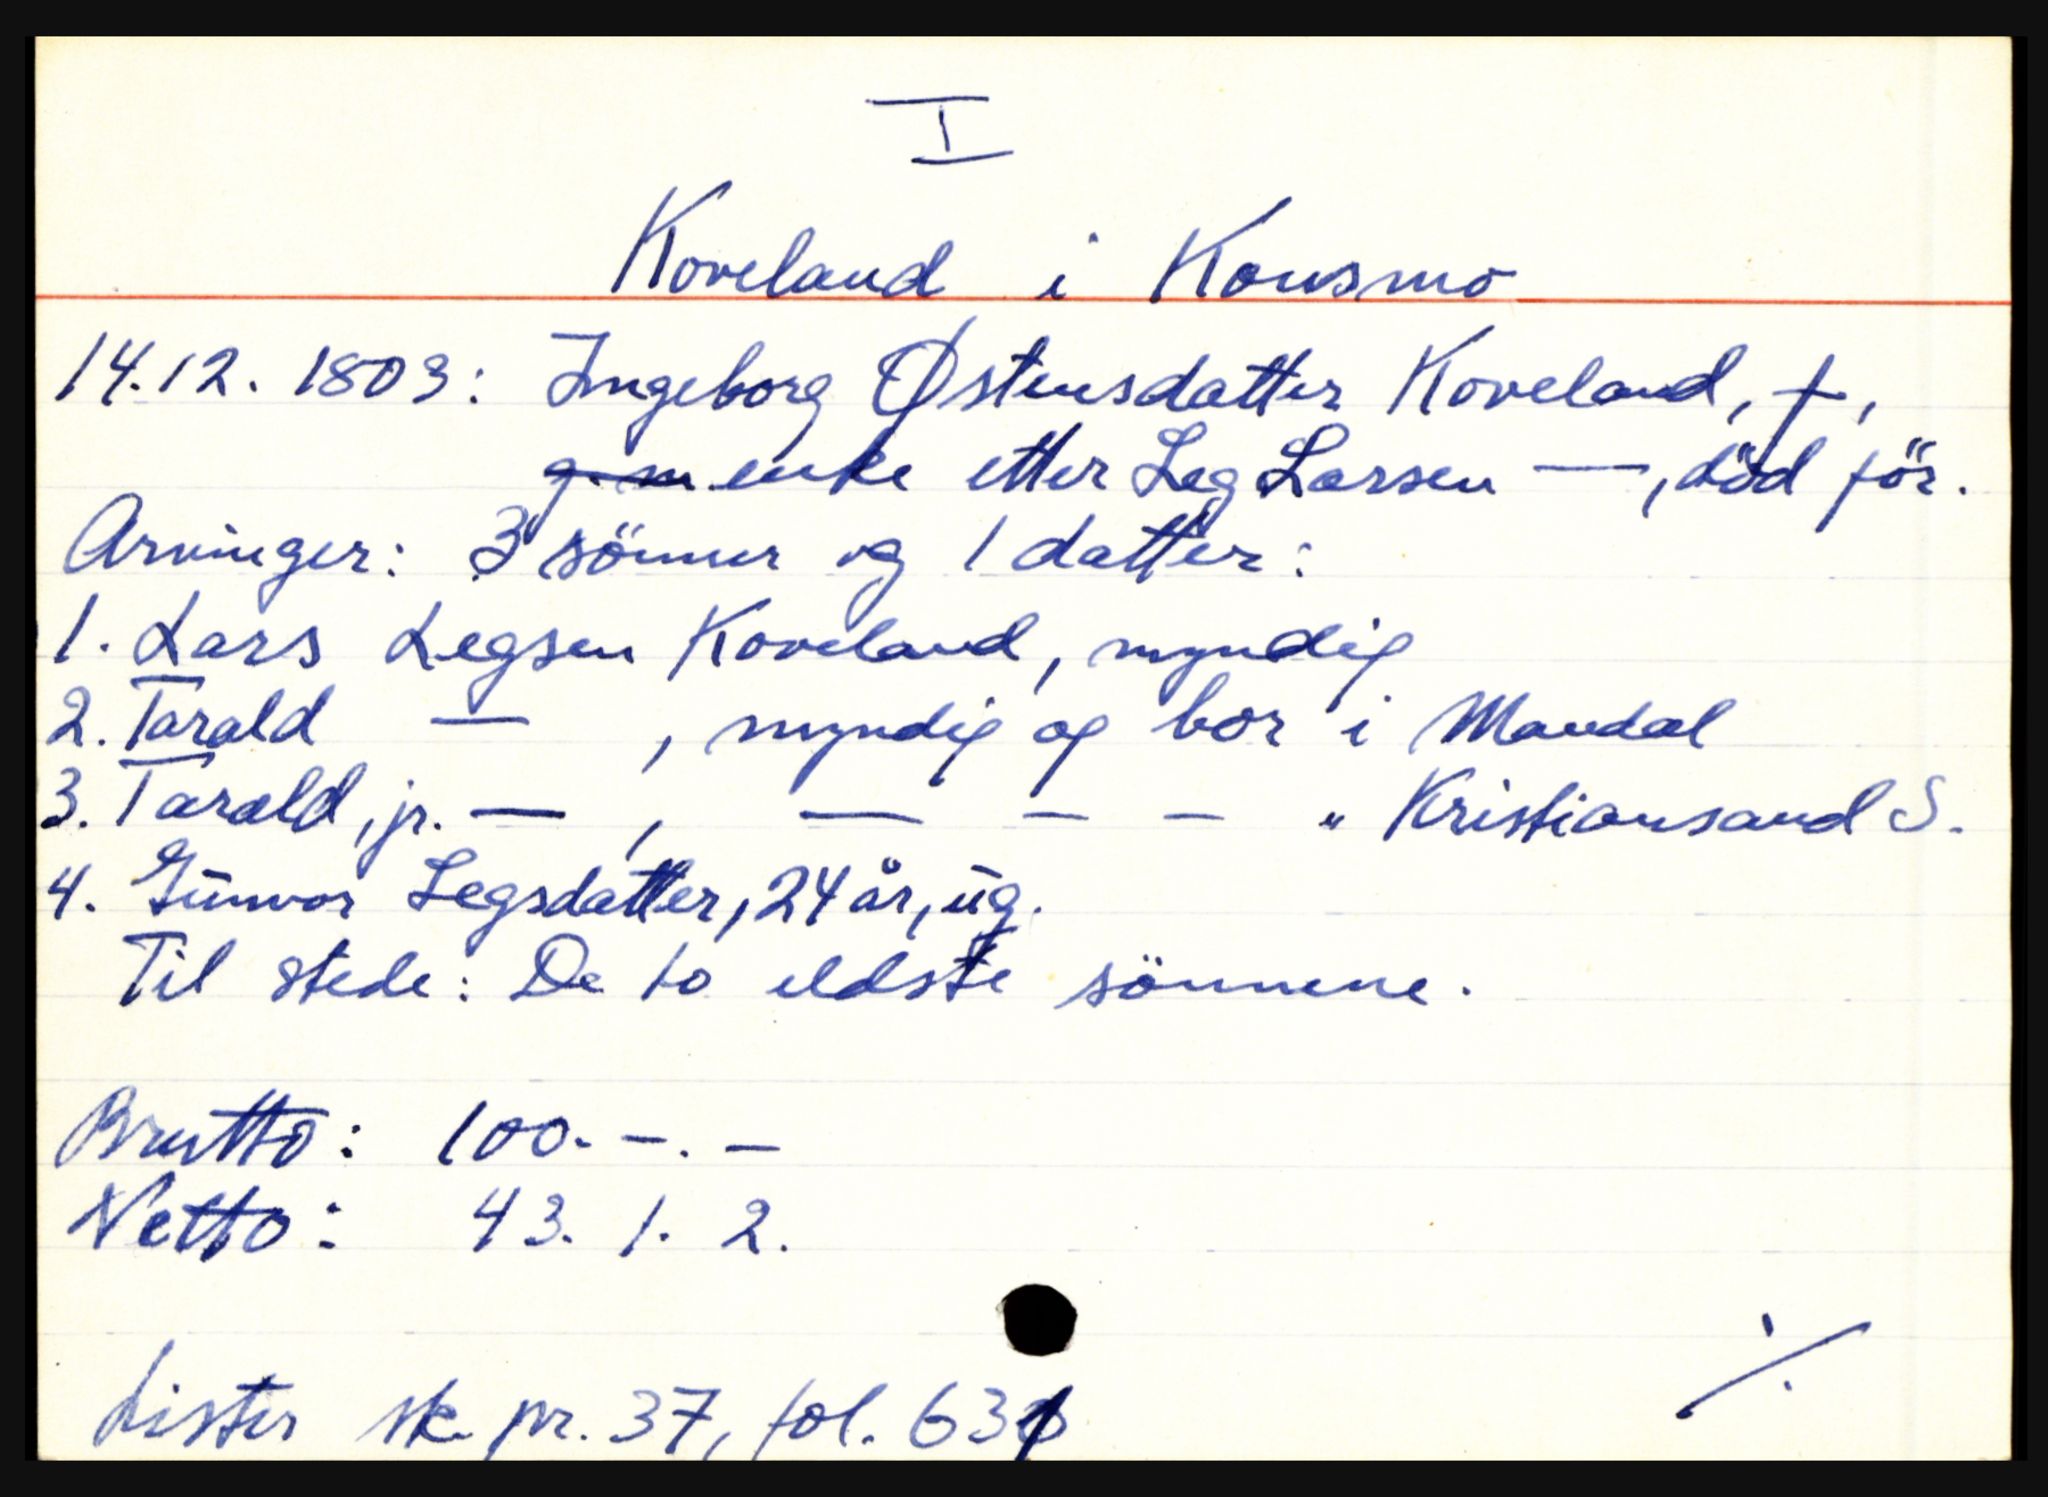 I
Koveland i Konsmo
14.12. 1803: Ingeborg Østensdatter Koveland, †,
g. m. enke etter Leg Larsen —, död för.
Arvinger: 3 sönner og 1 datter:
1. Lars Legsen Koveland, myndig
2. Tarald — , myndig og bor i Mandal
3. Tarald, jr. — , — — — " Kristiansand S.
4. Gunvor Legsdatter, 24 år, ug.
Til stede: De to eldste sönnene.
Brutto: 100. –. –
Netto: 43. 1. 2.
Lister sk. pr. 37, fol. 631